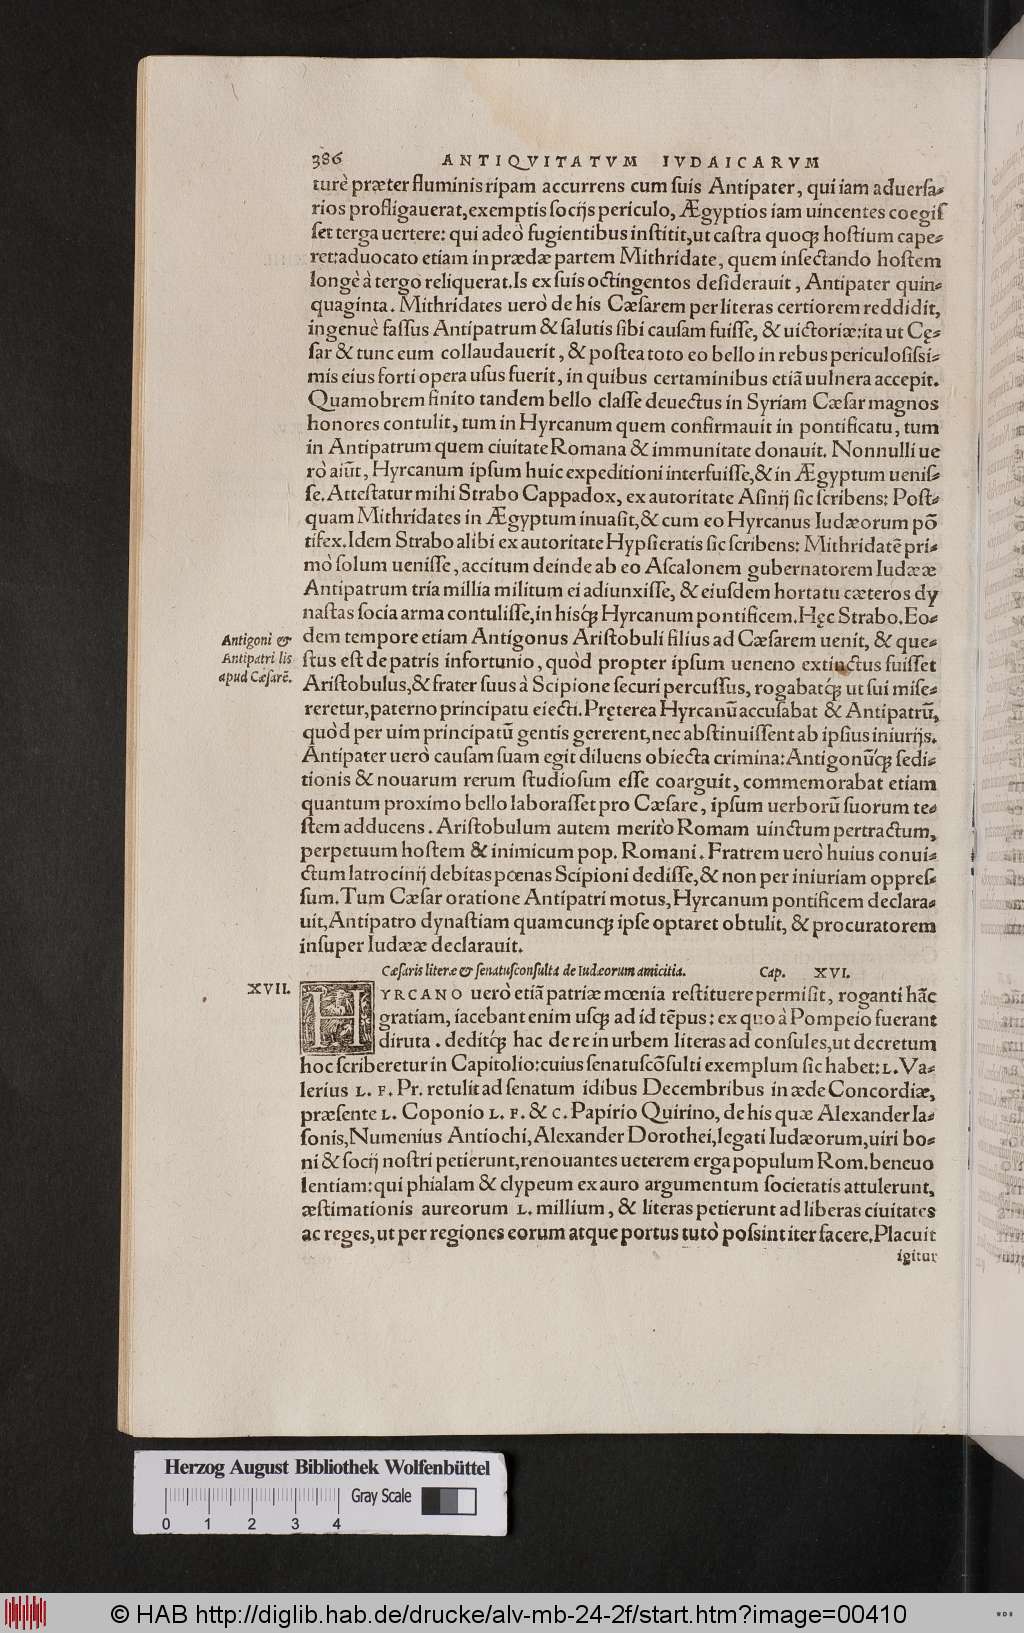 386 ANTIQVITATVM IVDAICARVM
turè præter fluminis ripam accurrens cum suis Antipater, qui iam aduersa-
rios profligauerat, exemptis socijs periculo, Ægyptios iam uincentes coegis
set terga uertere: qui adeò fugientibus institit, ut castra quoqꝫ hostium cape-
ret: aduocato etiam in prædæ partem Mithridate, quem insectando hostem
longè à tergo reliquerat. Is ex suis octingentos desiderauit, Antipater quin-
quaginta. Mithridates uerò de his Cæsarem per literas certiorem reddidit,
ingenuè fassus Antipatrum & salutis sibi causam fuisse, & uictoriæ: ita ut Cę-
sar & tunc eum collaudauerit, & postea toto eo bello in rebus periculosissi-
mis eius forti opera usus fuerit, in quibus certaminibus etiã uulnera accepit.
Quamobrem finito tandem bello classe deuectus in Syriam Cæsar magnos
honores contulit, tum in Hyrcanum quem confirmauit in pontificatu, tum
in Antipatrum quem ciuitate Romana & immunitate donauit. Nonnulli ue
rò aiũt, Hyrcanum ipsum huic expeditioni interfuisse, & in Ægyptum uenis-
se. Attestatur mihi Strabo Cappadox, ex autoritate Asinij sic scribens: Post-
quam Mithridates in Ægyptum inuasit, & cum eo Hyrcanus Iudæorum põ
tifex. Idem Strabo alibi ex autoritate Hypsicratis sic scribens: Mithridatẽ pri-
mò solum uenisse, accitum deinde ab eo Ascalonem gubernatorem Iudææ
Antipatrum tria millia militum ei adiunxisse, & eiusdem hortatu cæteros dy
nastas socia arma contulisse, in hisq́ꝫ Hyrcanum pontificem. Hęc Strabo. Eo-
Antigoni &
Antipatri lis
apud Cæsarẽ.
dem tempore etiam Antigonus Aristobuli filius ad Cæsarem uenit, & que-
stus est de patris infortunio, quòd propter ipsum ueneno extinctus fuisset
Aristobulus, & frater suus à Scipione securi percussus, rogabatq́ꝫ ut sui mise-
reretur, paterno principatu eiecti. Pręterea Hyrcanũ accusabat & Antipatrũ,
quòd per uim principatũ gentis gererent, nec abstinuissent ab ipsius iniurijs.
Antipater uerò causam suam egit diluens obiecta crimina: Antigonũq́ꝫ sedi-
tionis & nouarum rerum studiosum esse coarguit, commemorabat etiam
quantum proximo bello laborasset pro Cæsare, ipsum uerborũ suorum te-
stem adducens. Aristobulum autem meritò Romam uinctum pertractum,
perpetuum hostem & inimicum pop. Romani. Fratrem uerò huius conui-
ctum latrocinij debitas pœnas Scipioni dedisse, & non per iniuriam oppres-
sum. Tum Cæsar oratione Antipatri motus, Hyrcanum pontificem declara-
uit, Antipatro dynastiam quamcunqꝫ ipse optaret obtulit, & procuratorem
insuper Iudææ declarauit.
Cæsaris literæ & senatusconsulta de Iudæorum amicitia. Cap. XVI.
XVII.
HYRCANO uerò etiã patriæ mœnia restituere permisit, roganti hãc
gratiam, iacebant enim usqꝫ ad id tẽpus: ex quo à Pompeio fuerant
diruta. deditq́ꝫ hac de re in urbem literas ad consules, ut decretum
hoc scriberetur in Capitolio: cuius senatuscõsulti exemplum sic habet: L. Va-
lerius L. F. Pr. retulit ad senatum idibus Decembribus in æde Concordiæ,
præsente L. Coponio L. F. & C. Papirio Quirino, de his quæ Alexander Ia-
sonis, Numenius Antiochi, Alexander Dorothei, legati Iudæorum, uiri bo-
ni & socij nostri petierunt, renouantes ueterem erga populum Rom. beneuo
lentiam: qui phialam & clypeum ex auro argumentum societatis attulerunt,
æstimationis aureorum L. millium, & literas petierunt ad liberas ciuitates
ac reges, ut per regiones eorum atque portus tutò possint iter facere. Placuit
igitur
Herzog August Bibliothek Wolfenbüttel
Gray Scale
0 1 2 3 4
© HAB http://diglib.hab.de/drucke/alv-mb-24-2f/start.htm?image=00410